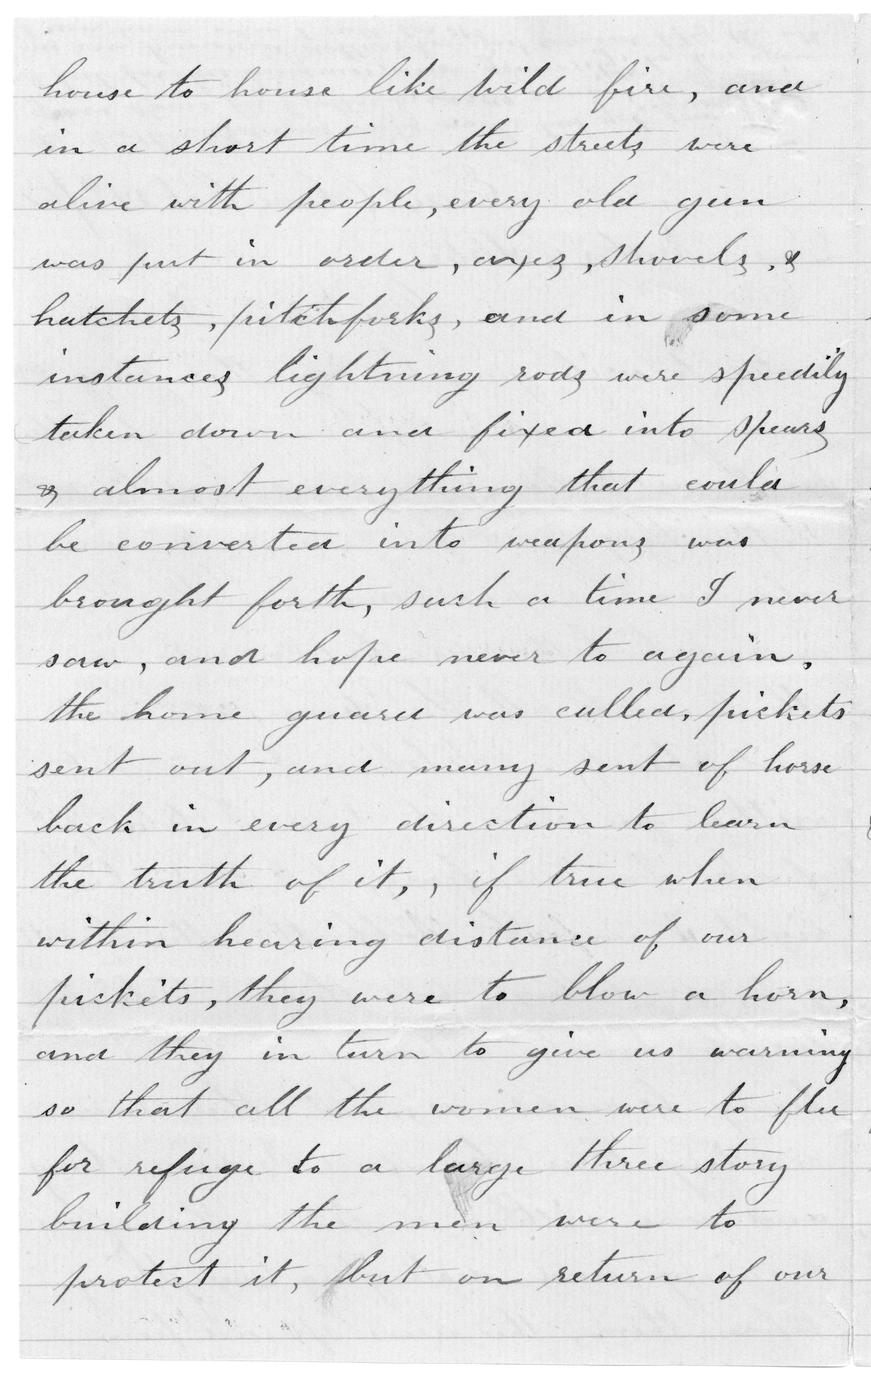 house to house like wild fire, and
in a short time the streets were
alive with people, every old gun
was put in order, axes, shovels, &
hatchets, pitchforks, and in some
instances lightning rods were speedily
taken down and fixed into spears
& almost everything that could
be converted into weapons was
brought forth, such a time I never
saw, and hope never to again,
the home guard was called, pickets
sent out, and many sent of horse
back in every direction to learn
the truth of it,, if true when
within hearing distance of our
pickets, they were to blow a horn,
and they in turn to give us warning
so that all the women were to flee
for refuge to a large three story
building the men were to
protect it, but on return of our